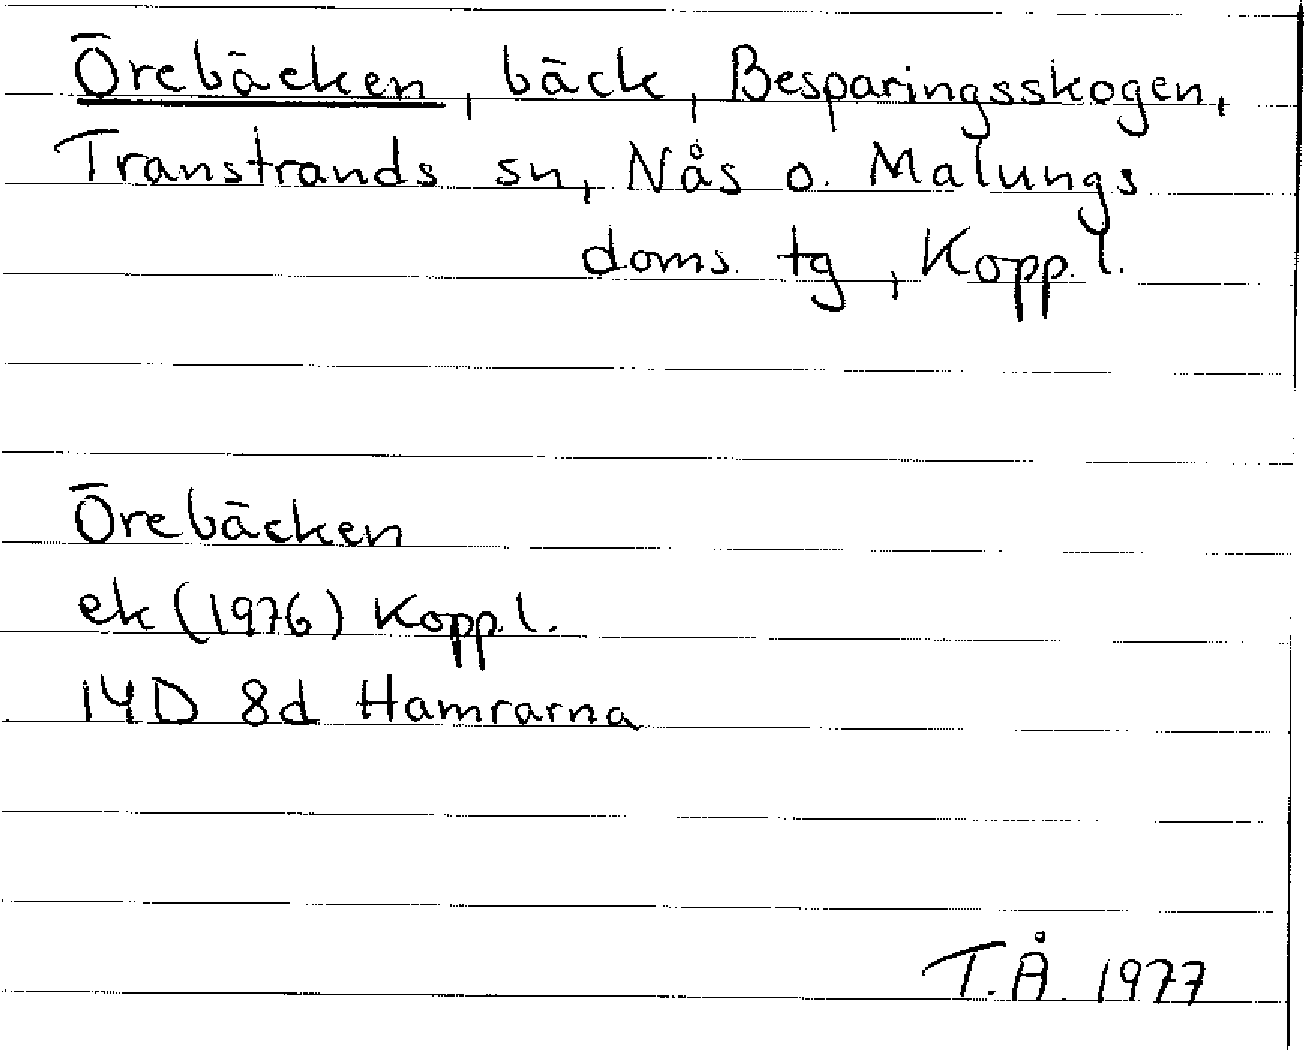 Örebäcken, bäck, Besparingsskogen,
Transtrands sn, Nås o. Malungs
doms. tg, Kopp. l.
Örebäcken
ek (1976) Kopp. l.
14D 8d Hamrarna
T.Å. 1977